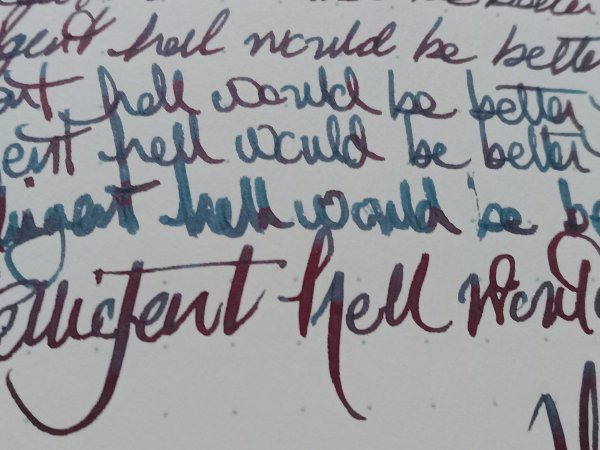 be better
gent hell would be better
ent hell would be better
ent hell would be better
lligent hell would be be
elligent hell would